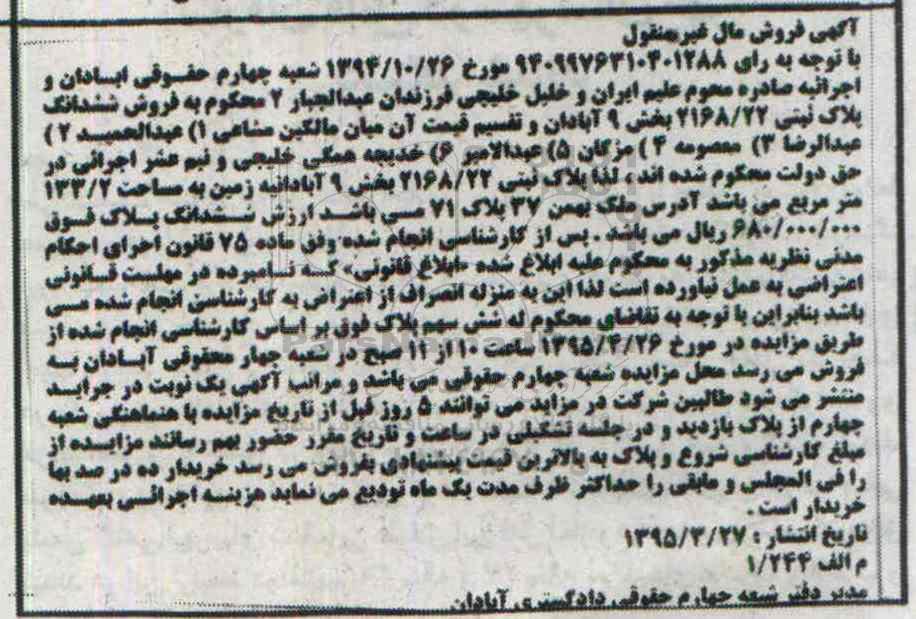 آگهی فروش مال غیرمنقول
با توجه به رای ۹۴۰۹۹۷۶۳۱۰۴۰۱۲۸۸ مورخ ۱۳۹۴/۱۰/۲۶ شعبه چهارم حقـوقی ابـادان و
اجرائیه صادره معوم علیم ایران و خلیل خلیجی فرزندان عبدالجبار ۲ محکوم به فروش ششدانگ
پلاک ثبتی ۲۱۶۸/۲۲ بخش ۹ آبادان و تقسیم قیمت آن میان مالکین مشاعی ۱) عبدالحمیـد ۲)
عبدالرضا ۳) معصومه ۴) مژگان ۵) عبدالامیر ۶) خدیجه همگی خلیجی و نیم عشر اجرائی در
حق دولت محکوم شده اند، لذا پلاک ثبتی ۲۱۶۸/۲۲ بخش ۹ آبادانیه زمین به مساحت ۱۳۳/۲
متر مربع می باشد آدرس ملک بهمن ۳۷ پلاک ۷۱ مـی باشـد ارزش شـشدانگ پـلاک فـوق
۶۸۰/۰۰۰/۰۰۰ ریال می باشد . پس از کارشناسی انجام شده وفق ماده ۷۵ قانون اجرای احکام
مدنی نظریه مذکور به محکوم علیه ابلاغ شده «ابلاغ قانونی» کـه نـامبرده در مهلـت قـانونی
اعتراضی به عمل نیاورده است لذا این به منزله انصراف از اعتراض به کارشناسی انجام شده مـی
باشد بنابراین با توجه به تقاضای محکوم له شش سهم پلاک فوق بر اساس کارشناسی انجام شده از
طریق مزایده در مورخ ۱۳۹۵/۴/۲۶ ساعت ۱۰ از ۱۱ صبح در شعبه چهار محقوقی آبـادان بـه
فروش می رسد محل مزایده شعبه چهارم حقوقی می باشد و مراتب آگهی یک نوبت در جرایـد
منتشر می شود طالبین شرکت در مزاید می توانند ۵ روز قبل از تاریخ مزایده با هماهنگی شعبه
چهارم از پلاک بازدید و در جلسه تشکیلی در ساعت و تاریخ مقرر حضور بهم رسانند مزایـده از
مبلغ کارشناسی شروع و پلاک به بالاترین قیمت پیشنهادی بفروش می رسد خریدار ده در صد بها
را فی المجلس و مابقی را حداکثر ظرف مدت یک ماه تودیع می نماید هزینـه اجرائـی بعهـده
خریدار است .
تاریخ انتشار : ۱۳۹۵/۳/۲۷
م الف ۱/۲۴۴
مدیر دفتر شعبه چهارم حقوقی دادگستری آبادان